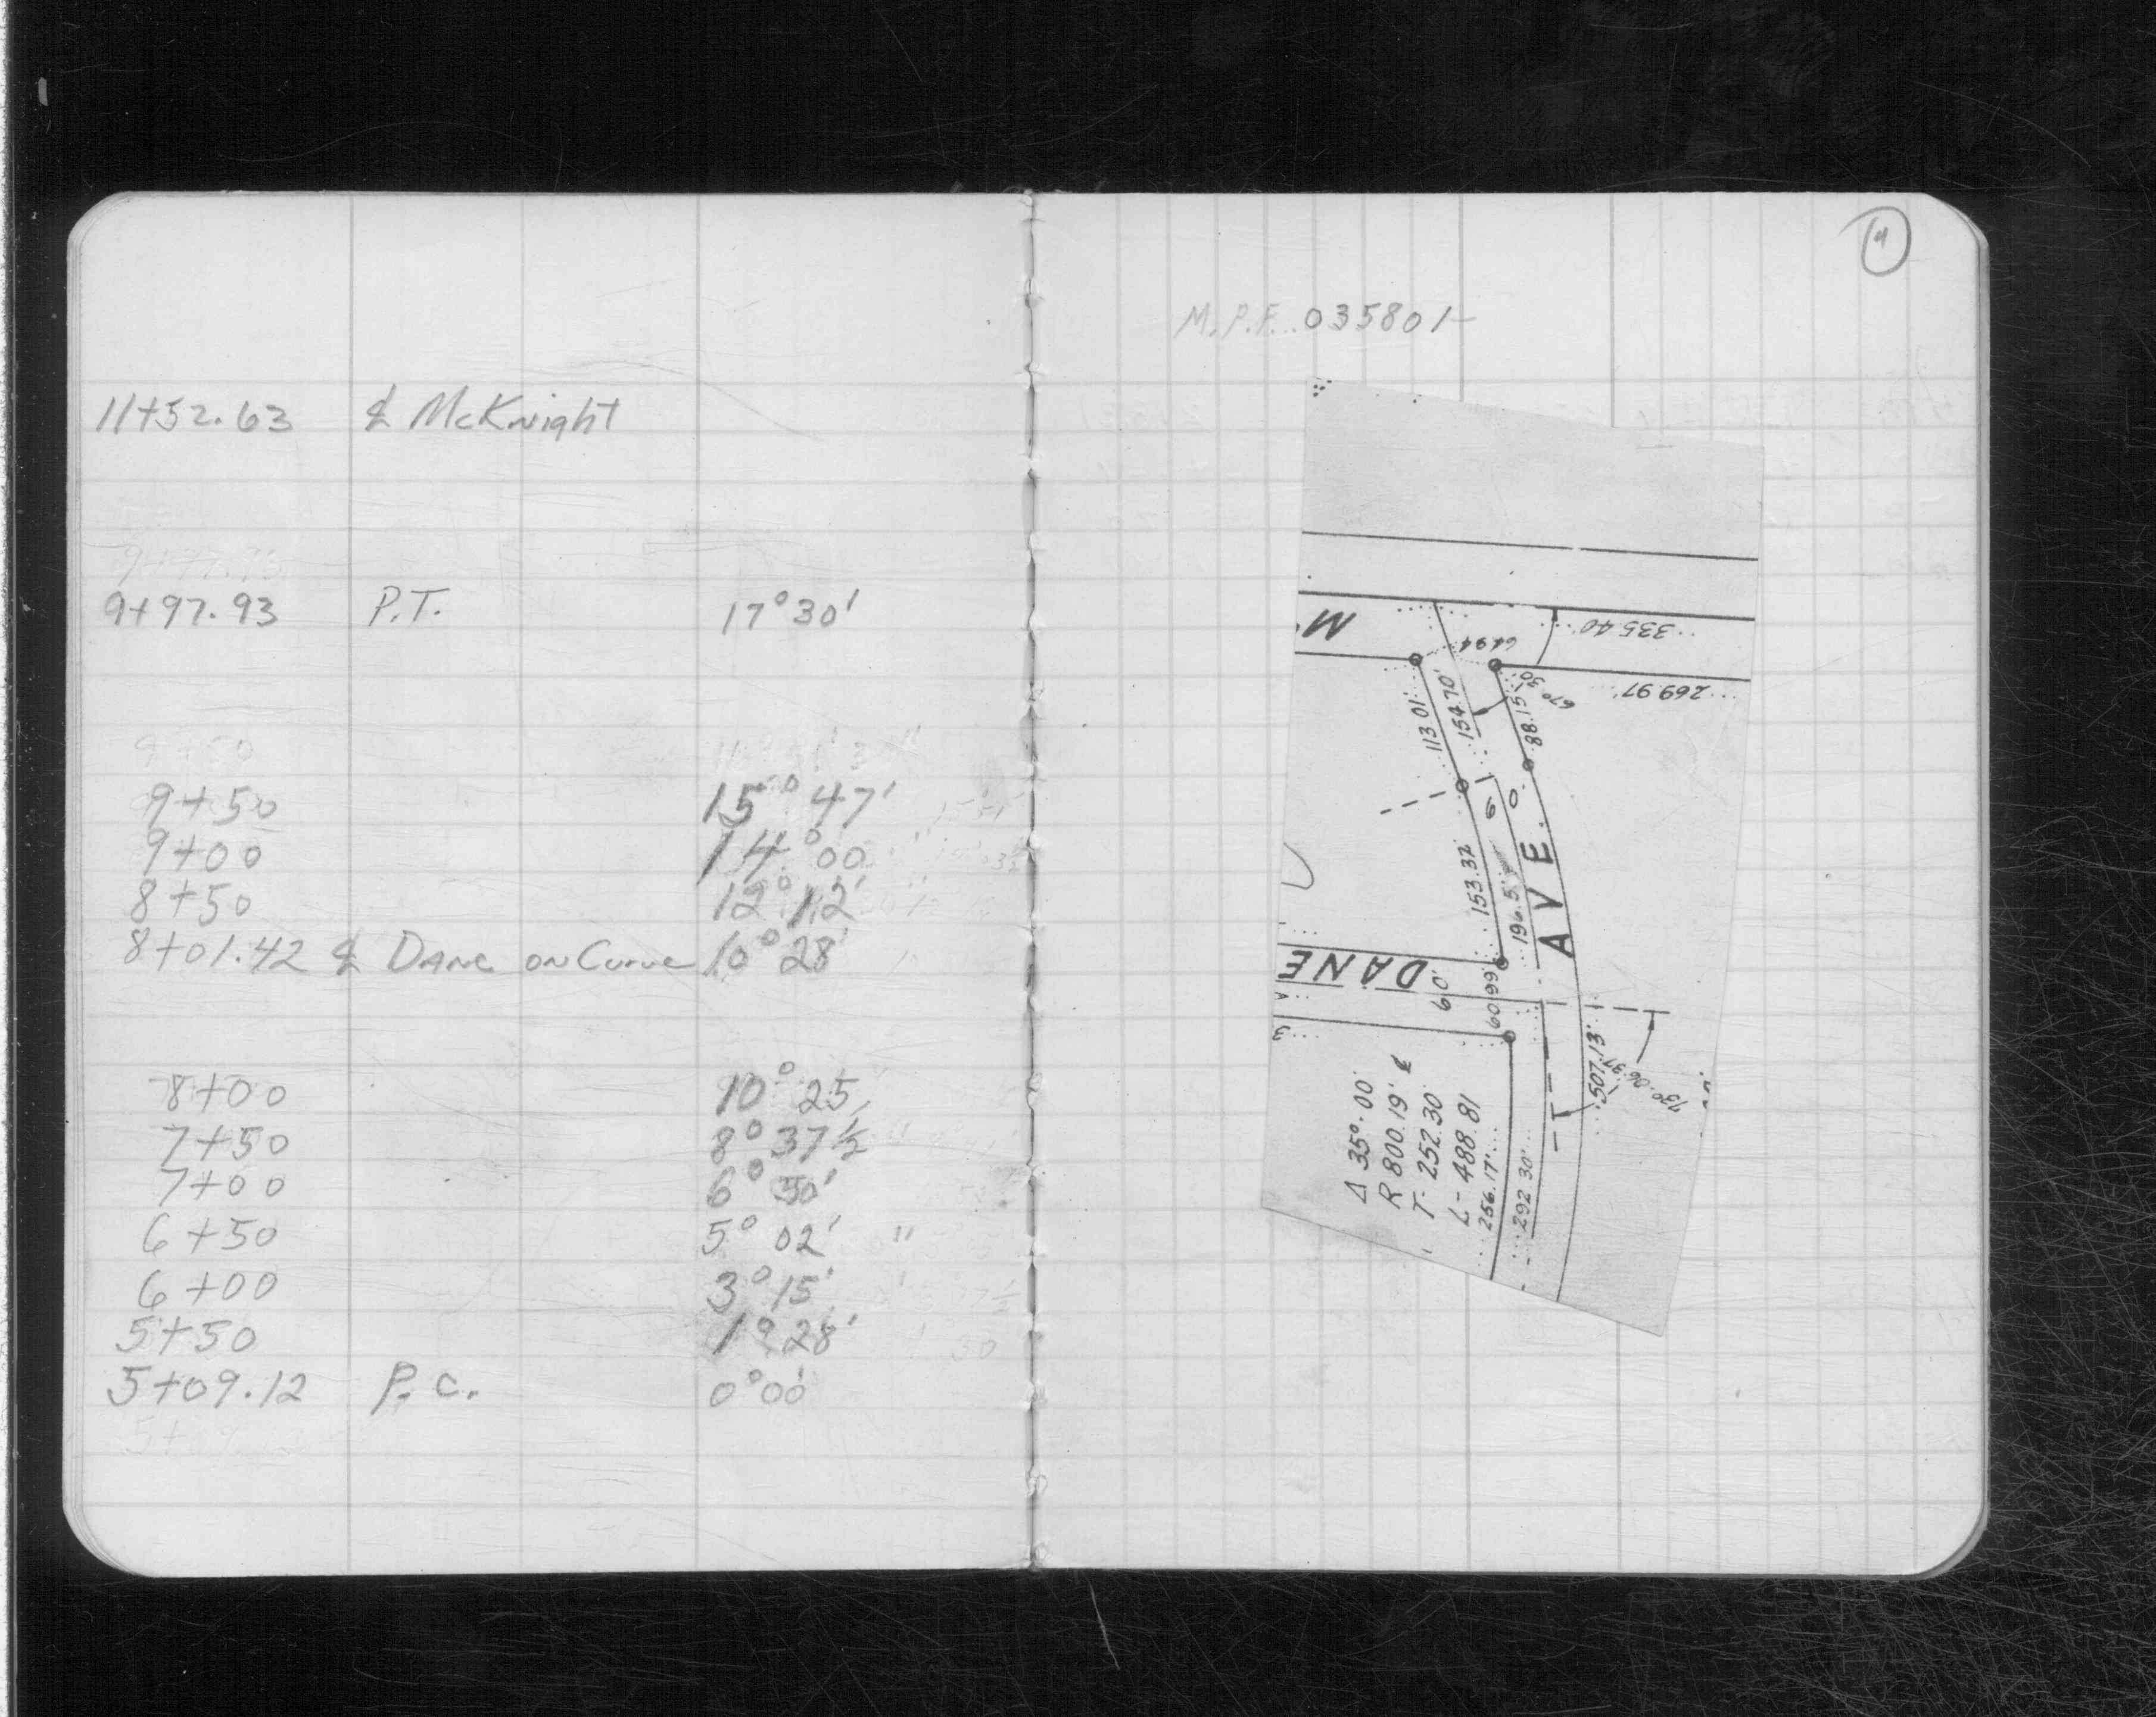 11+52.63 ℄ McKnight
9+97.93 P.T. 17°30'
9+50 15°47'
9+00 14°00
8+50 12°12'
8+01.42 ℄ Dane on Curve 10°28'
8+00 10°25
7+50 8°37½
7+00 6°50'
6+50 5°02' "
6+00 3°15'
5+50 1°28'
5+09.12 P.C. 0°00'
M.P.F. 035801-
335.40
M
64.94
269.97
67° 30'
113.01'
154.70'
88.15'
60
153.32
196.5
AVE.
DANE
60'
60.99
507.13'
Δ 35°-00'
R 800.19' ℄
T- 252.30
L- 488.81
256.17'
292.30'